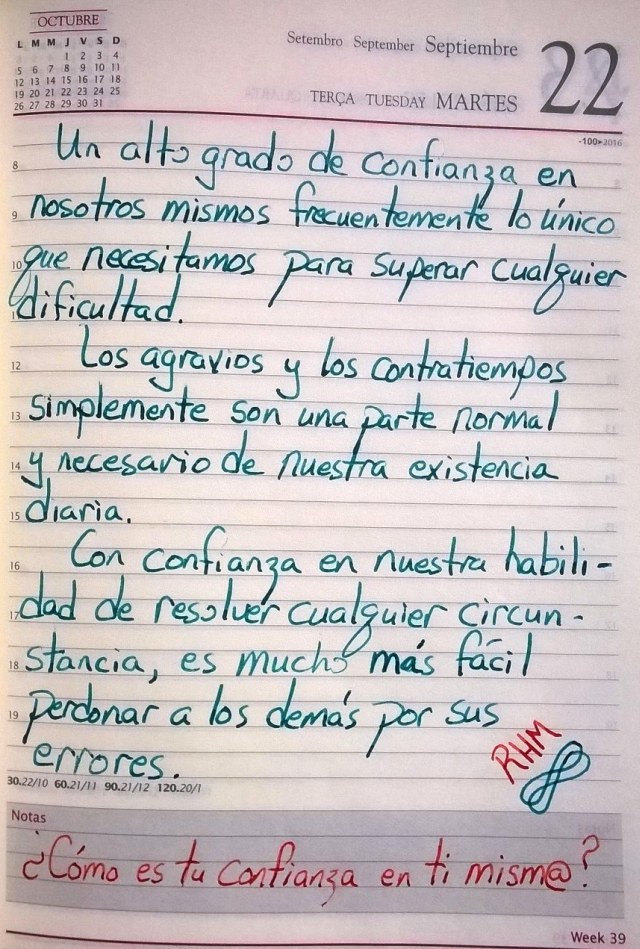 OCTUBRE
L M M J V S D
1 2 3 4
5 6 7 8 9 10 11
12 13 14 15 16 17 18
19 20 21 22 23 24 25
26 27 28 29 30 31
Setembro September Septiembre
22
TERÇA TUESDAY MARTES
-100▸2016
8 Un alto grado de confianza en
9 nosotros mismos frecuentemente lo único
10 que necesitamos para superar cualquier
dificultad.
12 Los agravios y los contratiempos
13 simplemente son una parte normal
14 y necesario de nuestra existencia
15 diaria.
16 Con confianza en nuestra habili-
17 dad de resolver cualquier circun-
18 stancia, es mucho más fácil
19 perdonar a los demás por sus
errores.
RHM
30.22/10 60.21/11 90.21/12 120.20/1
Notas
¿Cómo es tu confianza en ti mism@?
Week 39